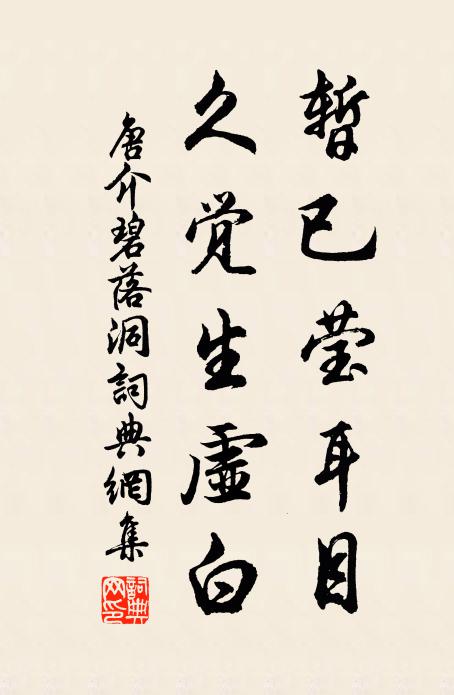 暂已莹耳目
久觉生虚白
唐介碧落洞詞典網集
詞典网印